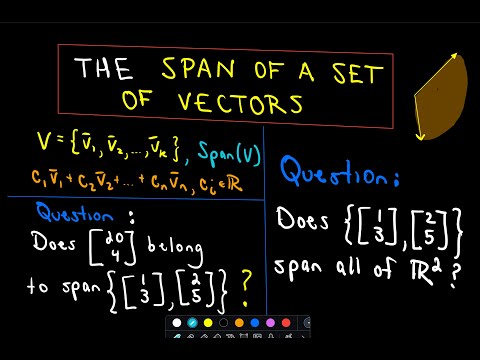 THE SPAN OF A SET
OF VECTORS
V = {v̄₁, v̄₂, ..., v̄ₖ}, Span(V)
c₁v̄₁ + c₂v̄₂ + ... + cₙv̄ₙ, cᵢ ∈ ℝ
Question:
Does [20 4] belong
to span {[1 3], [2 5]} ?
Question:
Does {[1 3], [2 5]}
span all of ℝ²?